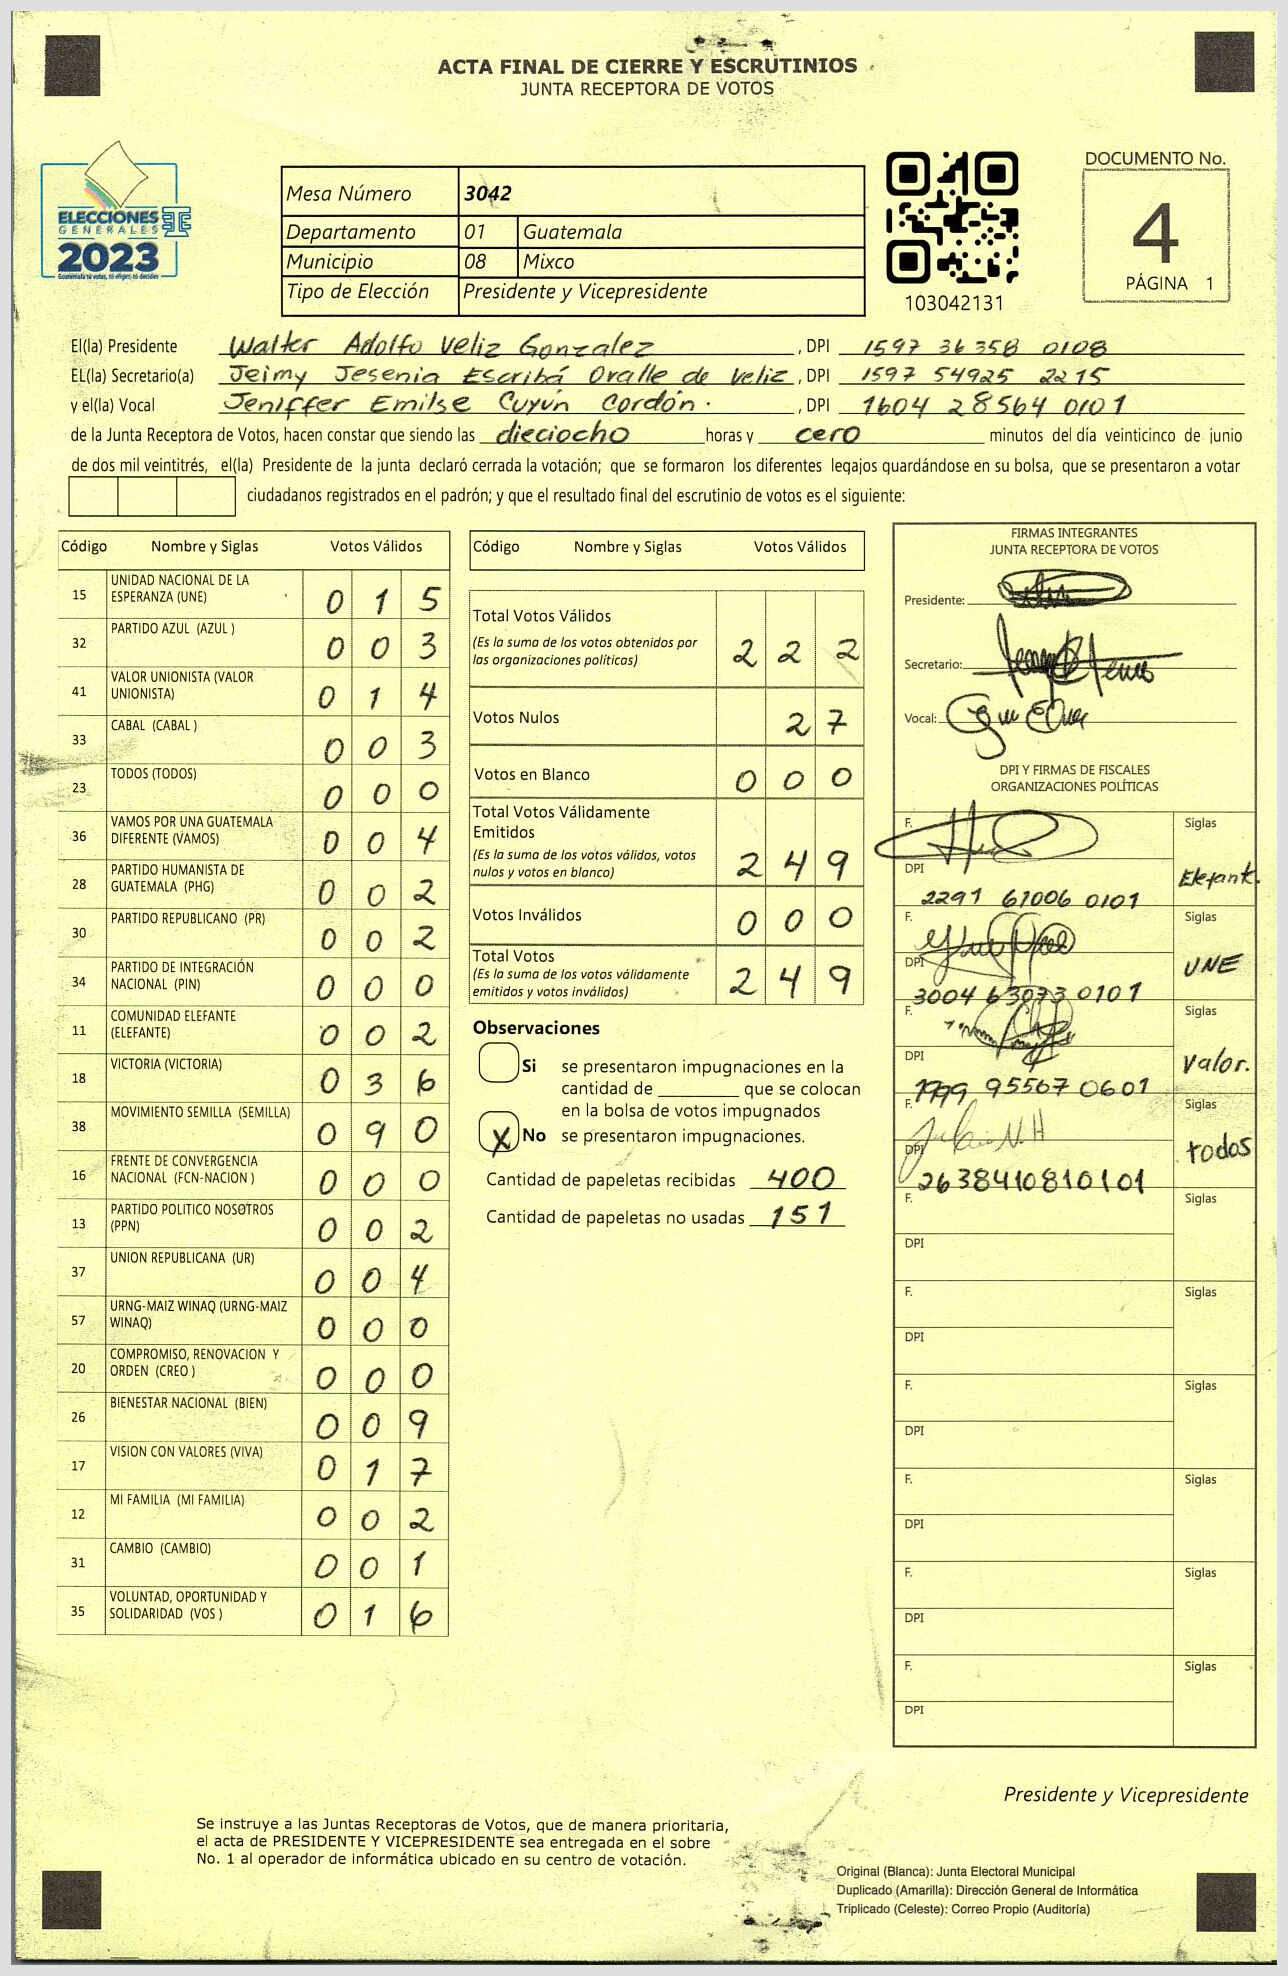 ACTA FINAL DE CIERRE Y ESCRUTINIOS
JUNTA RECEPTORA DE VOTOS
ELECCIONES
GENERALES
2023
Guatemala tú votas, tú eliges, tú decides
Mesa Número 3042
Departamento 01 Guatemala
Municipio 08 Mixco
Tipo de Elección Presidente y Vicepresidente
103042131
DOCUMENTO No.
4
PÁGINA 1
El(la) Presidente Walter Adolfo Veliz Gonzalez , DPI 1597 36358 0108
EL(la) Secretario(a) Jeimy Jesenia Escribá Ovalle de Veliz , DPI 1597 54925 2215
y el(la) Vocal Jeniffer Emilse Cuyún Cordón. , DPI 1604 28564 0101
de la Junta Receptora de Votos, hacen constar que siendo las dieciocho horas y cero minutos del día veinticinco de junio
de dos mil veintitrés, el(la) Presidente de la junta declaró cerrada la votación; que se formaron los diferentes legajos guardándose en su bolsa, que se presentaron a votar
ciudadanos registrados en el padrón; y que el resultado final del escrutinio de votos es el siguiente:
Código Nombre y Siglas Votos Válidos
15 UNIDAD NACIONAL DE LA
ESPERANZA (UNE) 0 1 5
32 PARTIDO AZUL (AZUL ) 0 0 3
41 VALOR UNIONISTA (VALOR
UNIONISTA) 0 1 4
33 CABAL (CABAL ) 0 0 3
23 TODOS (TODOS) 0 0 0
36 VAMOS POR UNA GUATEMALA
DIFERENTE (VAMOS) 0 0 4
28 PARTIDO HUMANISTA DE
GUATEMALA (PHG) 0 0 2
30 PARTIDO REPUBLICANO (PR) 0 0 2
34 PARTIDO DE INTEGRACIÓN
NACIONAL (PIN) 0 0 0
11 COMUNIDAD ELEFANTE
(ELEFANTE) 0 0 2
18 VICTORIA (VICTORIA) 0 3 6
38 MOVIMIENTO SEMILLA (SEMILLA) 0 9 0
16 FRENTE DE CONVERGENCIA
NACIONAL (FCN-NACION ) 0 0 0
13 PARTIDO POLITICO NOSOTROS
(PPN) 0 0 2
37 UNION REPUBLICANA (UR) 0 0 4
57 URNG-MAIZ WINAQ (URNG-MAIZ
WINAQ) 0 0 0
20 COMPROMISO, RENOVACION Y
ORDEN (CREO ) 0 0 0
26 BIENESTAR NACIONAL (BIEN) 0 0 9
17 VISION CON VALORES (VIVA) 0 1 7
12 MI FAMILIA (MI FAMILIA) 0 0 2
31 CAMBIO (CAMBIO) 0 0 1
35 VOLUNTAD, OPORTUNIDAD Y
SOLIDARIDAD (VOS ) 0 1 6
Código Nombre y Siglas Votos Válidos
Total Votos Válidos
(Es la suma de los votos obtenidos por
las organizaciones políticas) 2 2 2
Votos Nulos 2 7
Votos en Blanco 0 0 0
Total Votos Válidamente
Emitidos
(Es la suma de los votos válidos, votos
nulos y votos en blanco) 2 4 9
Votos Inválidos 0 0 0
Total Votos
(Es la suma de los votos válidamente
emitidos y votos inválidos) 2 4 9
Observaciones
Si se presentaron impugnaciones en la
cantidad de ________ que se colocan
en la bolsa de votos impugnados
X No se presentaron impugnaciones.
Cantidad de papeletas recibidas 400
Cantidad de papeletas no usadas 151
FIRMAS INTEGRANTES
JUNTA RECEPTORA DE VOTOS
Presidente:
Secretario:
Vocal:
DPI Y FIRMAS DE FISCALES
ORGANIZACIONES POLÍTICAS
F. Siglas
DPI Elefant.
2291 61006 0101
F. Siglas
DPI UNE
3004 63073 0101
F. Siglas
DPI Valor.
1999 95567 0601
F. Siglas
DPI todos
2638410810101
F. Siglas
DPI
F. Siglas
DPI
F. Siglas
DPI
F. Siglas
DPI
F. Siglas
DPI
F. Siglas
DPI
Presidente y Vicepresidente
Se instruye a las Juntas Receptoras de Votos, que de manera prioritaria,
el acta de PRESIDENTE Y VICEPRESIDENTE sea entregada en el sobre
No. 1 al operador de informática ubicado en su centro de votación.
Original (Blanca): Junta Electoral Municipal
Duplicado (Amarilla): Dirección General de Informática
Triplicado (Celeste): Correo Propio (Auditoría)